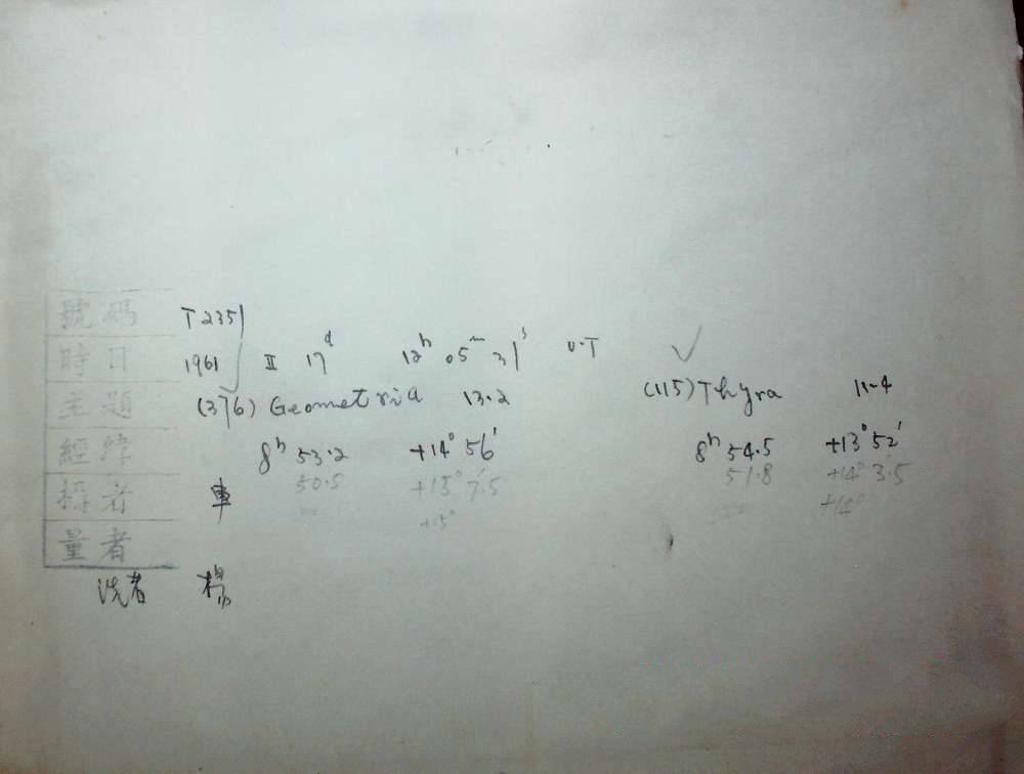 號碼 T2351
時日 1961 II 17d 12h 05m 31s U.T ✓
主題 (376) Geometria 13.2 (115) Thyra 11.4
經緯 8h 53.2 +14° 56' 8h 54.5 +13° 52'
者 車 50.5 +15° 7.5 51.8 +14° 3.5
+15° +14°
量者
洗者 楊